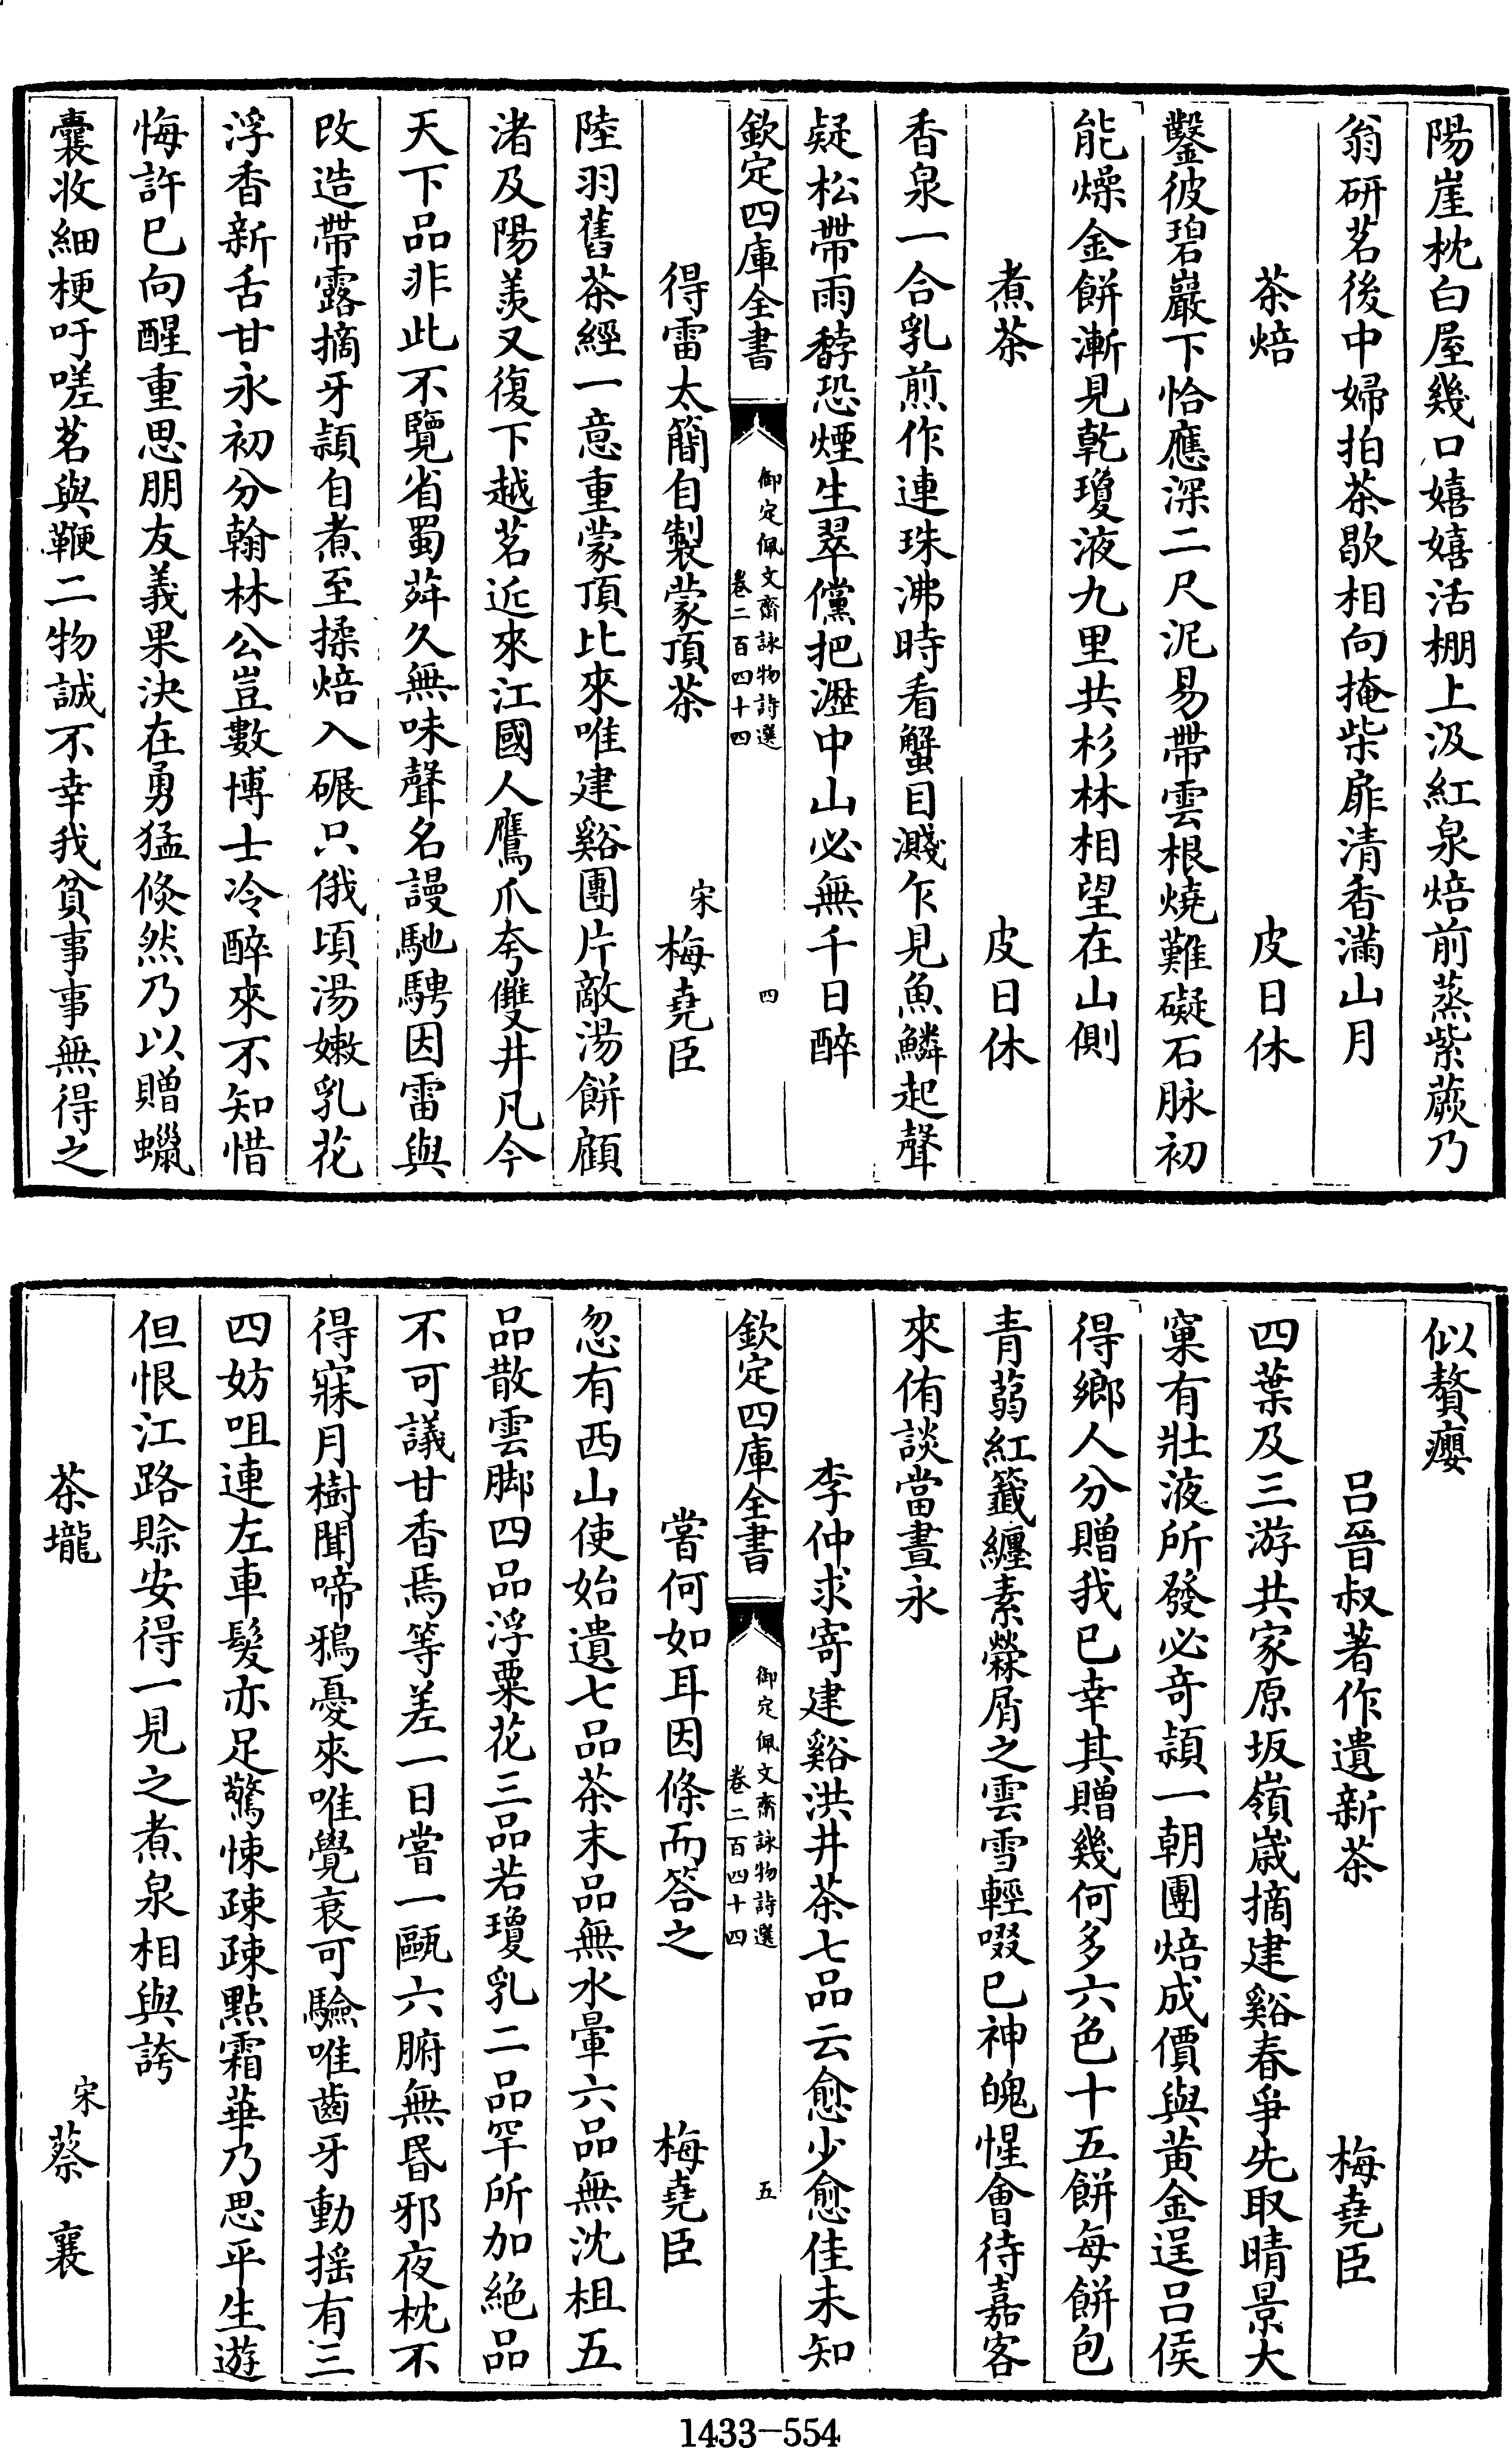 陽崖枕白屋幾口嬉嬉活棚上汲紅泉焙前蒸紫蕨乃
翁研茗後中婦拍茶歇相向掩柴扉清香滿山月
茶焙 皮日休
鑿彼碧巖下恰應深二尺泥易帶雲根燒難礙石脉初
能燥金餅漸見乾瓊液九里共杉林相望在山側
煮茶 皮日休
香泉一合乳煎作連珠沸時看蟹目濺乍見魚鱗起聲
疑松帶雨餑恐煙生翠儻把瀝中山必無千日醉
欽定四庫全書 御定佩文齋詠物詩選 卷二百四十四 四
得雷太簡自製蒙頂茶 宋 梅堯臣
陸羽舊茶經一意重蒙頂比來唯建谿團片敵湯餅顧
渚及陽羨又復下越茗近來江國人鷹爪夸雙井凡今
天下品非此不覽省蜀荈久無味聲名謾馳騁因雷與
改造帶露摘牙穎自煮至揉焙入碾只俄頃湯嫩乳花
浮香新舌甘永初分翰林公豈數博士冷醉來不知惜
悔許已向醒重思朋友義果決在勇猛倏然乃以贈蠟
囊收細梗吁嗟茗與鞭二物誠不幸我貧事事無得之
似贅癭
呂晉叔著作遺新茶 梅堯臣
四葉及三游共家原坂嶺歲摘建谿春爭先取晴景大
窠有壯液所發必奇穎一朝團焙成價與黃金逞呂侯
得鄉人分贈我已幸其贈幾何多六色十五餅每餅包
青蒻紅籤纏素蘂屑之雲雪輕啜已神魄惺會待嘉客
來侑談當晝永
李仲求寄建谿洪井茶七品云愈少愈佳未知
欽定四庫全書 御定佩文齋詠物詩選 卷二百四十四 五
嘗何如耳因條而答之 梅堯臣
忽有西山使始遺七品茶末品無水暈六品無沈柤五
品散雲脚四品浮粟花三品若瓊乳二品罕所加絕品
不可議甘香焉等差一日嘗一甌六腑無昏邪夜枕不
得寐月樹聞啼鴉憂來唯覺衰可驗唯齒牙動搖有三
四妨咀連左車髮亦足驚悚疎疎點霜華乃思平生遊
但恨江路賒安得一見之煮泉相與誇
茶壠 宋 蔡襄
1433-554